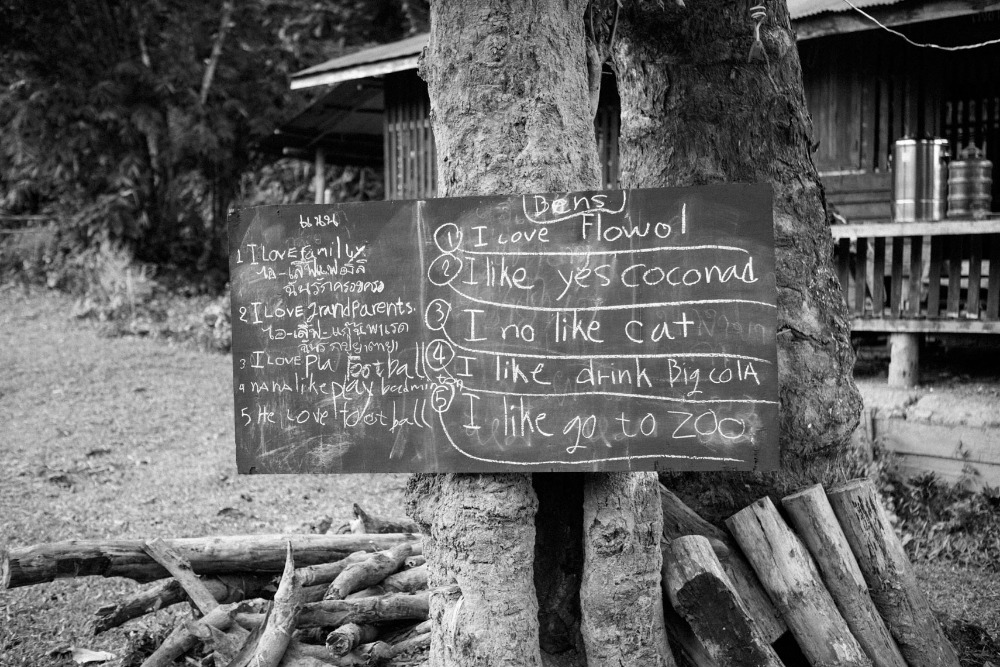 แนน
1 I Love family
ไอ-เลิฟแฟมิลี
ฉันรักครอบครัว
2 I Love grandParents.
ไอ-เลิฟ-แกรนพาเรด
3 I Love Pla Football
4 nana like play badminton
5 He Love football
Bens
1 I Love flowol
2 I like yes coconad
3 I no like cat
4 I like drink Big colA
5 I like go to zoo